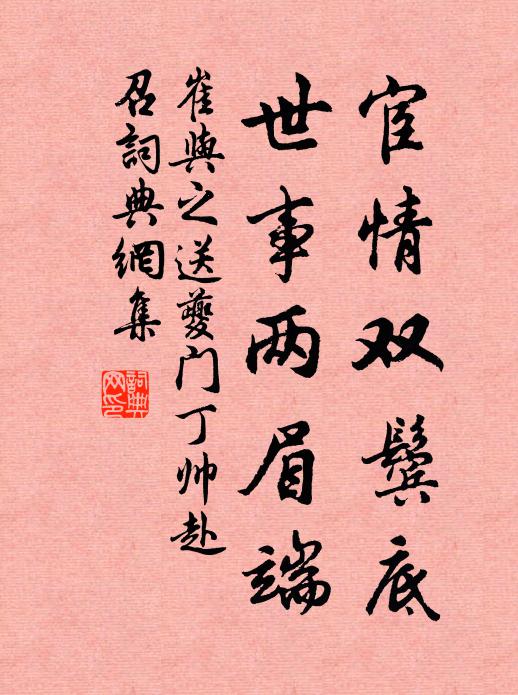 宦情双鬓底
世事两眉端
崔與之送夔门丁帅赴
召詞典網集
詞典网印